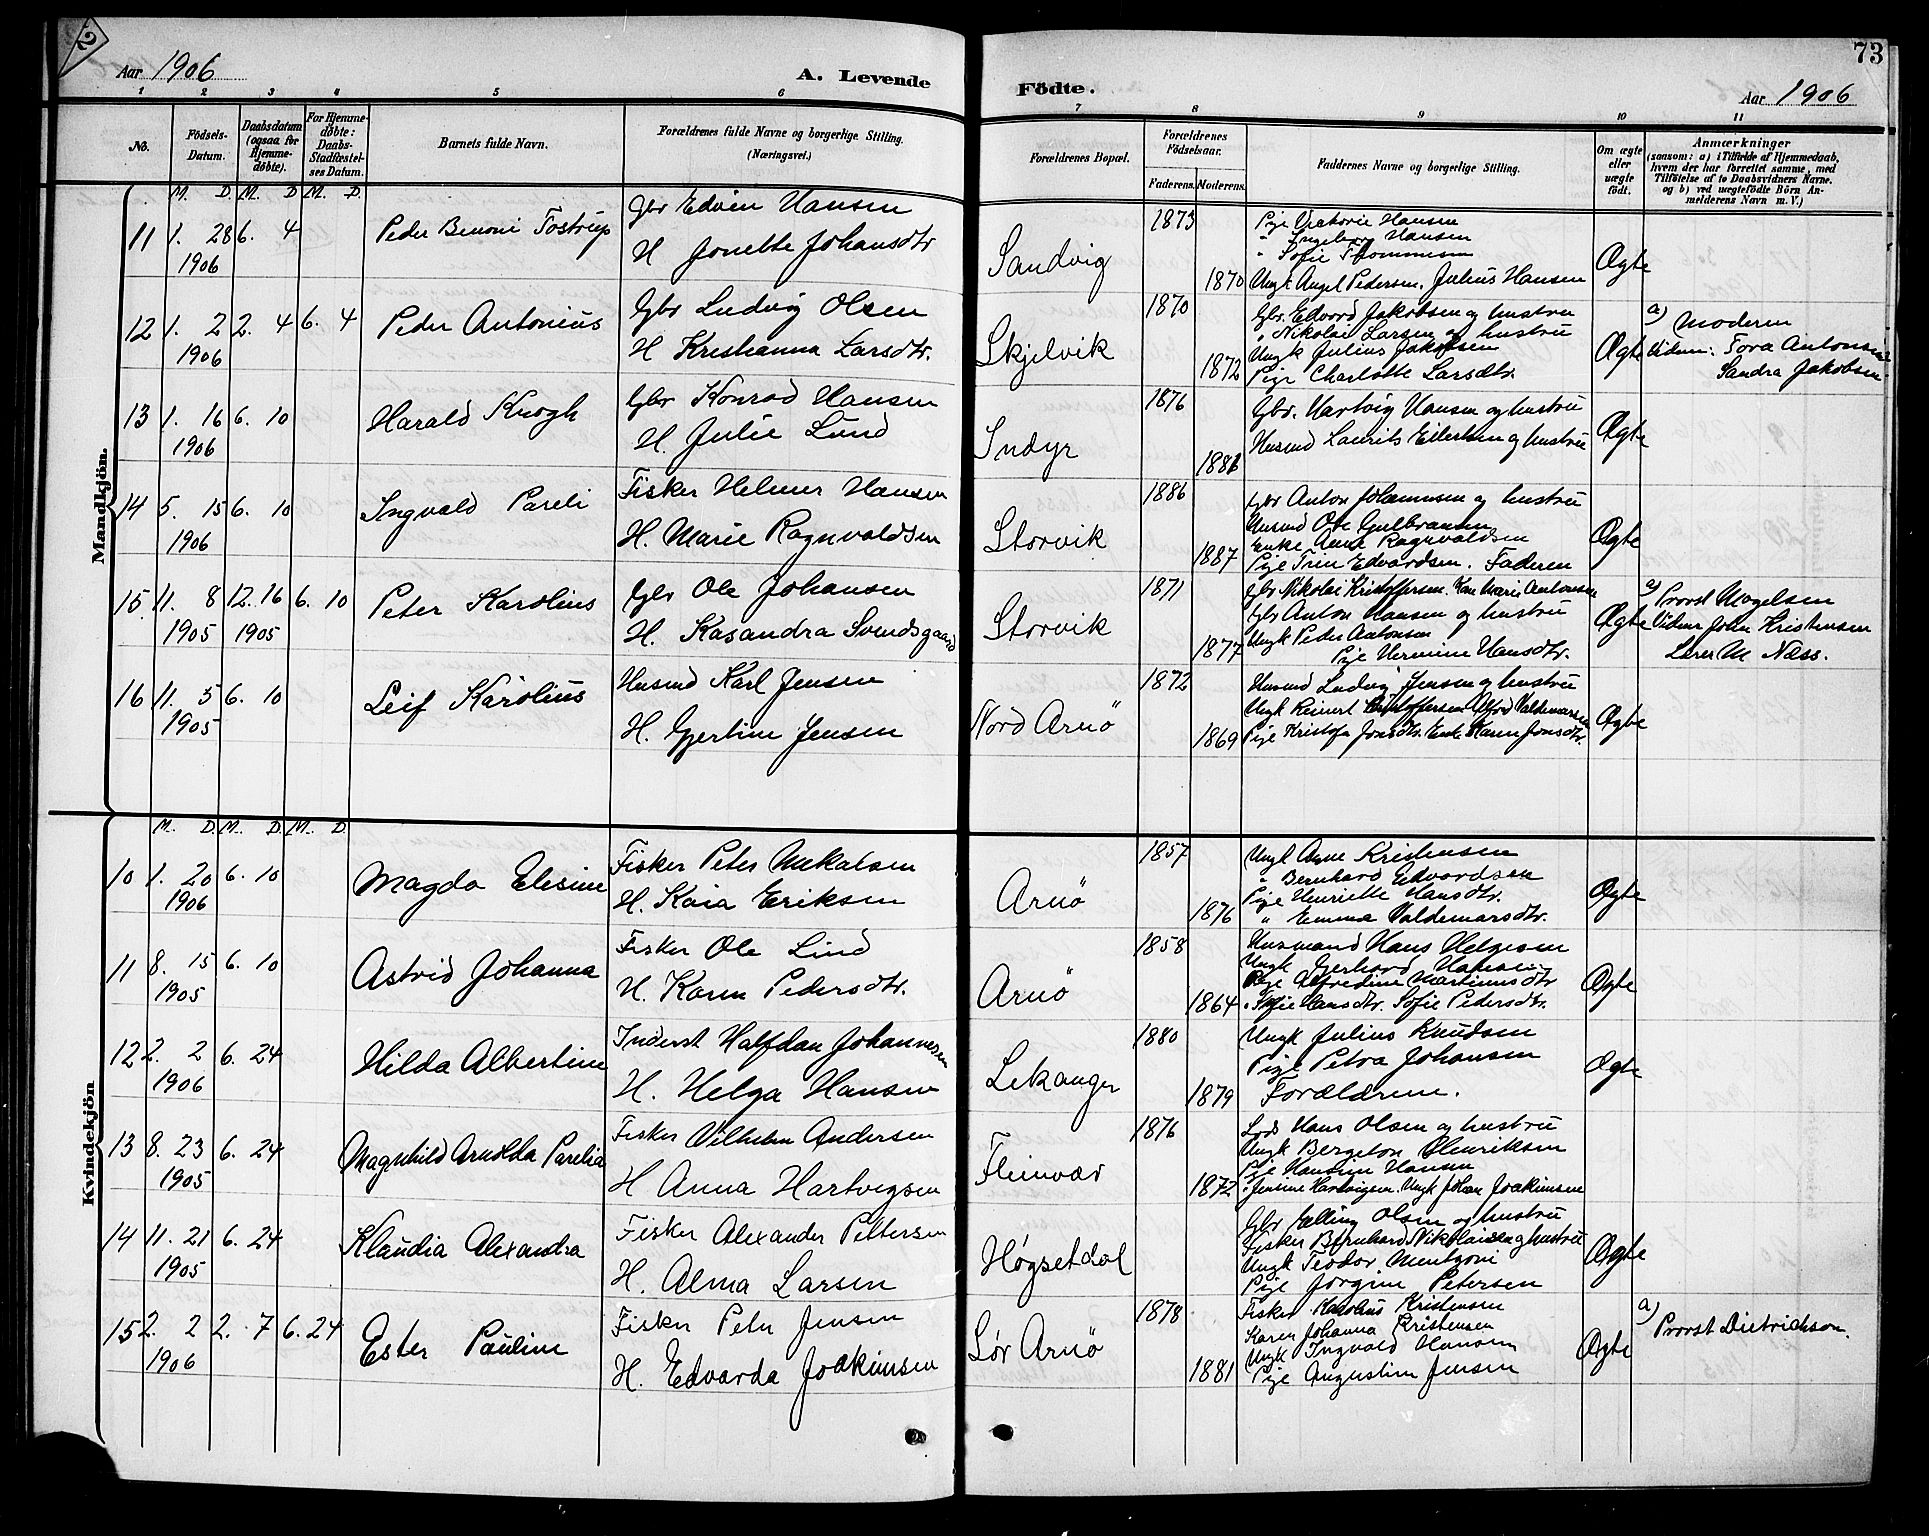 Aar 1906
A. Levende
Födte.
73
Aar 1906
1 2 3 4 5 6 7 8 9 10 11
No.
Födsels-Datum.
Daabsdatum (ogsaa for Hjemmedöbte).
For Hjemmedöbte: Daabs-Stadfæstelses Datum.
Barnets fulde Navn.
Forældrenes fulde Navne og borgerlige Stilling. (Næringsvei.)
Forældrenes Bopæl.
Forældrenes Födselsaar.
Faderens.
Moderens.
Faddernes Navne og borgerlige Stilling.
Om ægte eller uægte födt.
Anmærkninger
(saasom: a) i Tilfælde af Hjemmedaab, hvem der har forrettet samme, med Tilföielse af to Daabsvidners Navne. og b) ved uægtefödte Börn Anmelderens Navn m. V.)
Mandkjön.
M. D. M. D M. D.
11 1. 28 6. 4
1906
Peder Benoni Tostrup
Gbr Edvin Hansen
H Jonette Johansdtr
Sandvig
1873
1870
Pige Viktorie Hansen
" Ingeborg Hansen
" Sofie Thommesen
Ungk Angel Pedersen. Julius Hansen
Ægte
12 1. 2 2. 4 6. 4
1906
Peder Antonius
Gbr Ludvig Olsen
H Kristianna Larsdtr.
Skjelvik
1870
1872
Gbr. Edvard Jakobsen og hustru
" Nikolai Larsen og hustru
Ungk Julius Jakobsen
Pige Charlotte Larsdtr.
Ægte
a) Moderen
Vidner: Tora Antonsen
Sandra Jakobsen
13 1. 16 6. 10
1906
Harald Krogh
Gbr Konrad Hansen
H. Julie Lund
Indyr
1876
1881
Gbr. Hartvig Hansen og hustru
Husmd Laurits Eilertsen og hustru
Ægte
14 5. 15 6. 10
1906
Ingvald Pareli
Fisker Helmer Hansen
H. Marie Ragnvaldsen
Storvik
1886
1887
Gbr Anton Johannesen og hustru
Husmd Ole Gulbransen
Enke Anne Ragnvaldsen
Pige Trine Edvardsen. Faderen
Ægte
15. 11. 8 12. 16 6. 10
1905 1905
Peter Karolius
Gbr Ole Johansen
H. Kasandra Svendsgaard
Storvik
1871
1877
Gbr Nikolai Kristoffersen. Kone Marie Antonsen
Gbr Anton Hansen og hustru
Ungk Peder Antonsen
Pige Hermine Hansdtr.
Ægte
a) Provst Mogelsen
Vidner John Kristensen
Lærer M Næss.
16 11. 5 6. 10
1905
Leif Karolius
Husmd Karl Jensen
H. Gjertine Jensen
Nord Arnö
1872
1869
Husmd Ludvig Jensen og hustru
Ungk Reinert Kristoffersen Alfred Valdemarsen
Pige Kristofa Jonsdtr. Enke Karen Jonsdtr.
Ægte
Kvindekjön
M. D. M. D. M. D.
10 1. 20 6. 10
1906
Magda Elisine
Fisker Peter Mikalsen
H. Kaia Eriksen
Arnö
1857
1876
Ungk Arne Kristensen
" Bernhard Edvardsen
Pige Henriette Hansdtr.
" Emma Valdemarsdtr.
Ægte
11 8. 15 6. 10
1905
Astrid Johanna
Fisker Ole Lind
H. Karen Pedersdtr.
Arnö
1858
1864
Husmand Hans Helgesen
Ungk Gerhard Hansen
Pige Alfredine Martinusdtr
" Sofie Hansdtr. Sofie Pedersdtr.
Ægte
12 2. 2 6. 24
1906
Hilda Albertine
Inderst Halfdan Johannesen
H. Helga Hansen
Lekanger
1880
1879
Ungk Julius Knudsen
Pige Petra Johansen
Forældrene.
Ægte
13 8. 23 6. 24
1905
Magnhild Arnolda Parelia
Fisker Vilhelm Andersen
H Anna Hartvigsen
Fleinvær
1876
1872
Lods Hans Olsen og hustru
Ungk Bergeton Henriksen
Pige Hansine Hansen
" Jensine Hartvigsen. Ungk Johan Joakimsen
14 11. 21 6. 24
1905
Klaudia Alexandra
Fisker Alexander Pettersen
H. Alma Larsen
Høgsetdal
Gbr Elling Olsen og hustru
Fisker Bernhard Nikolaisen og hustru
Ungk Teodor Mentzoni
Pige Jorgine Petersen
Ægte
15 2. 2 2. 7 6. 24
1906
Ester Pauline
Fisker Peter Jensen
H. Edvarda Joakimsen
Sør Arnö
1878
1881
Fisker Karolius Kristensen
Karen Johanna Kristensen
Ungk Ingvald Hansen
Pige Augustine Jensen
Ægte
a) Provst Dietrichson.